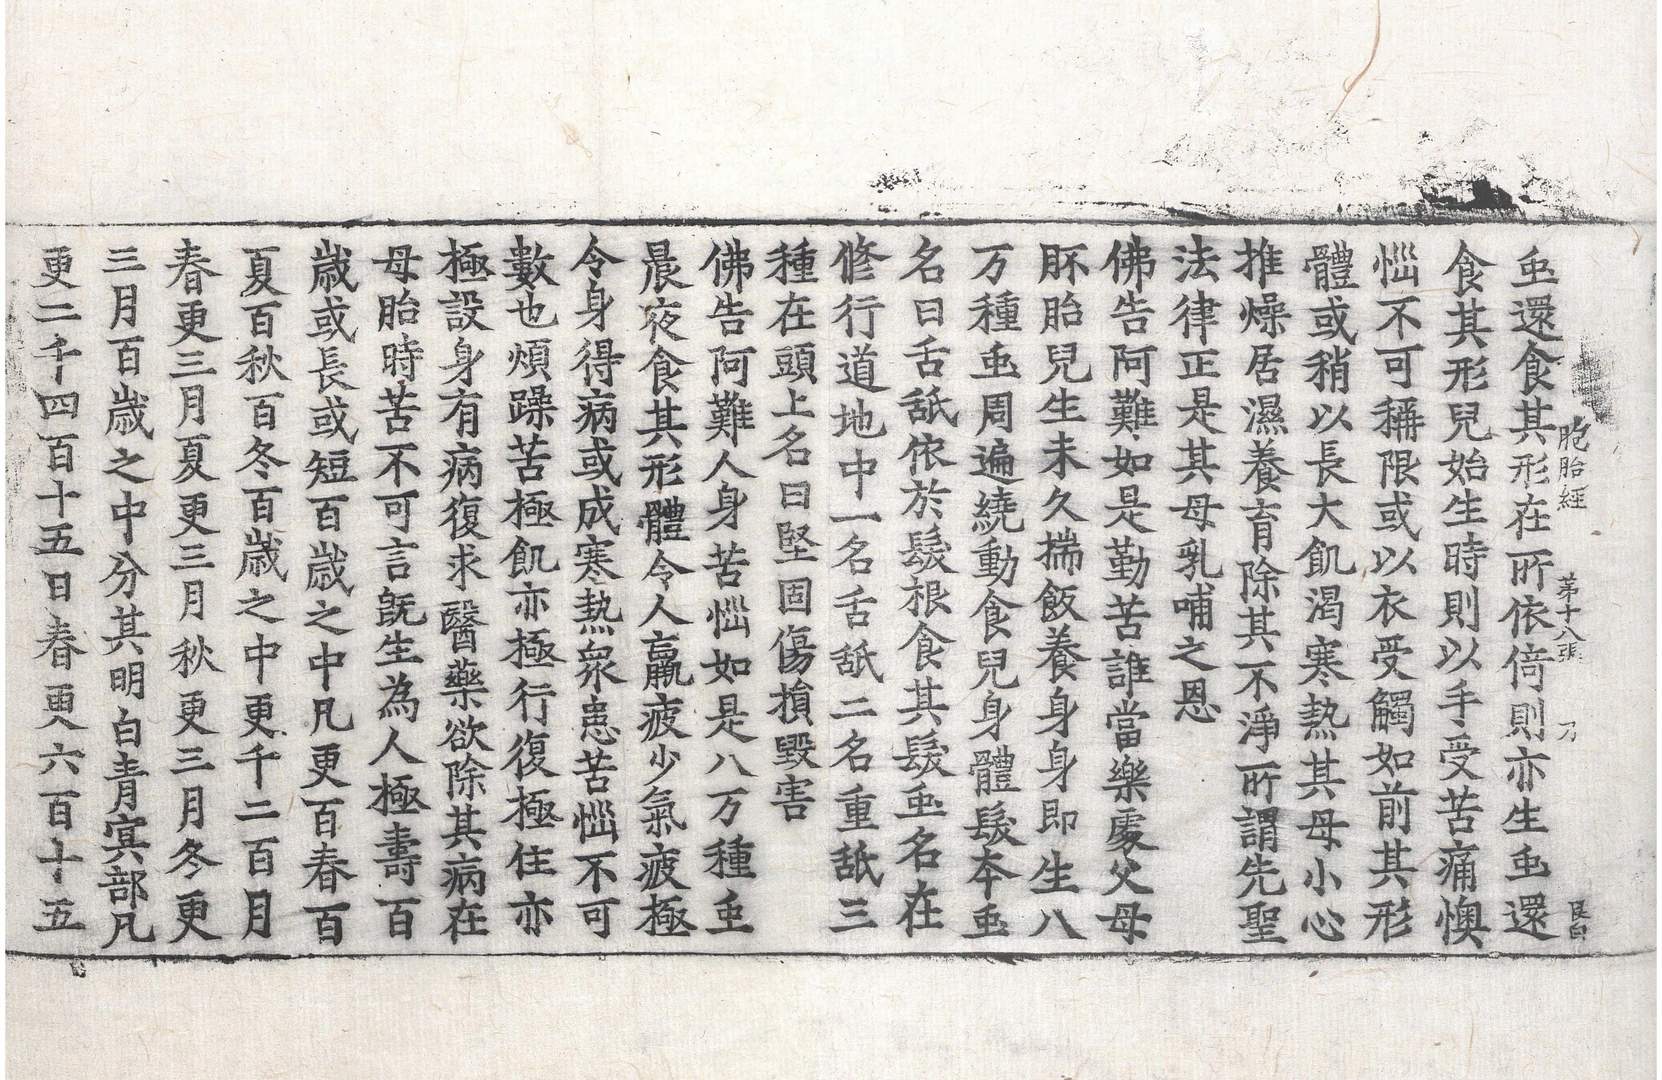 胞胎經 第十八張 刀 艮白
䖝還食其形在所依倚則亦生䖝還
食其形兒始生時則以手受苦痛懊
惱不可稱限或以衣受觸如前其形
體或稍以長大飢渴寒熱其母小心
推燥居濕養育除其不淨所謂先聖
法律正是其母乳哺之恩
佛告阿難如是勤苦誰當樂處父母
胚胎兒生未久揣飯養身身即生八
万種䖝周遍繞動食兒身體髮本䖝
名曰舌舐依於髮根食其髮䖝名在
修行道地中一名舌舐二名重舐三
種在頭上名曰堅固傷損毀害
佛告阿難人身苦惱如是八万種䖝
晨夜食其形體令人羸疲少氣疲極
令身得病或成寒熱衆患苦惱不可
數也煩躁苦極飢亦極行復極住亦
極設身有病復求醫藥欲除其病在
母胎時苦不可言旣生為人極壽百
歲或長或短百歲之中凡更百春百
夏百秋百冬百歲之中更千二百月
春更三月夏更三月秋更三月冬更
三月百歲之中分其明白青冥部凡
更二千四百十五日春更六百十五